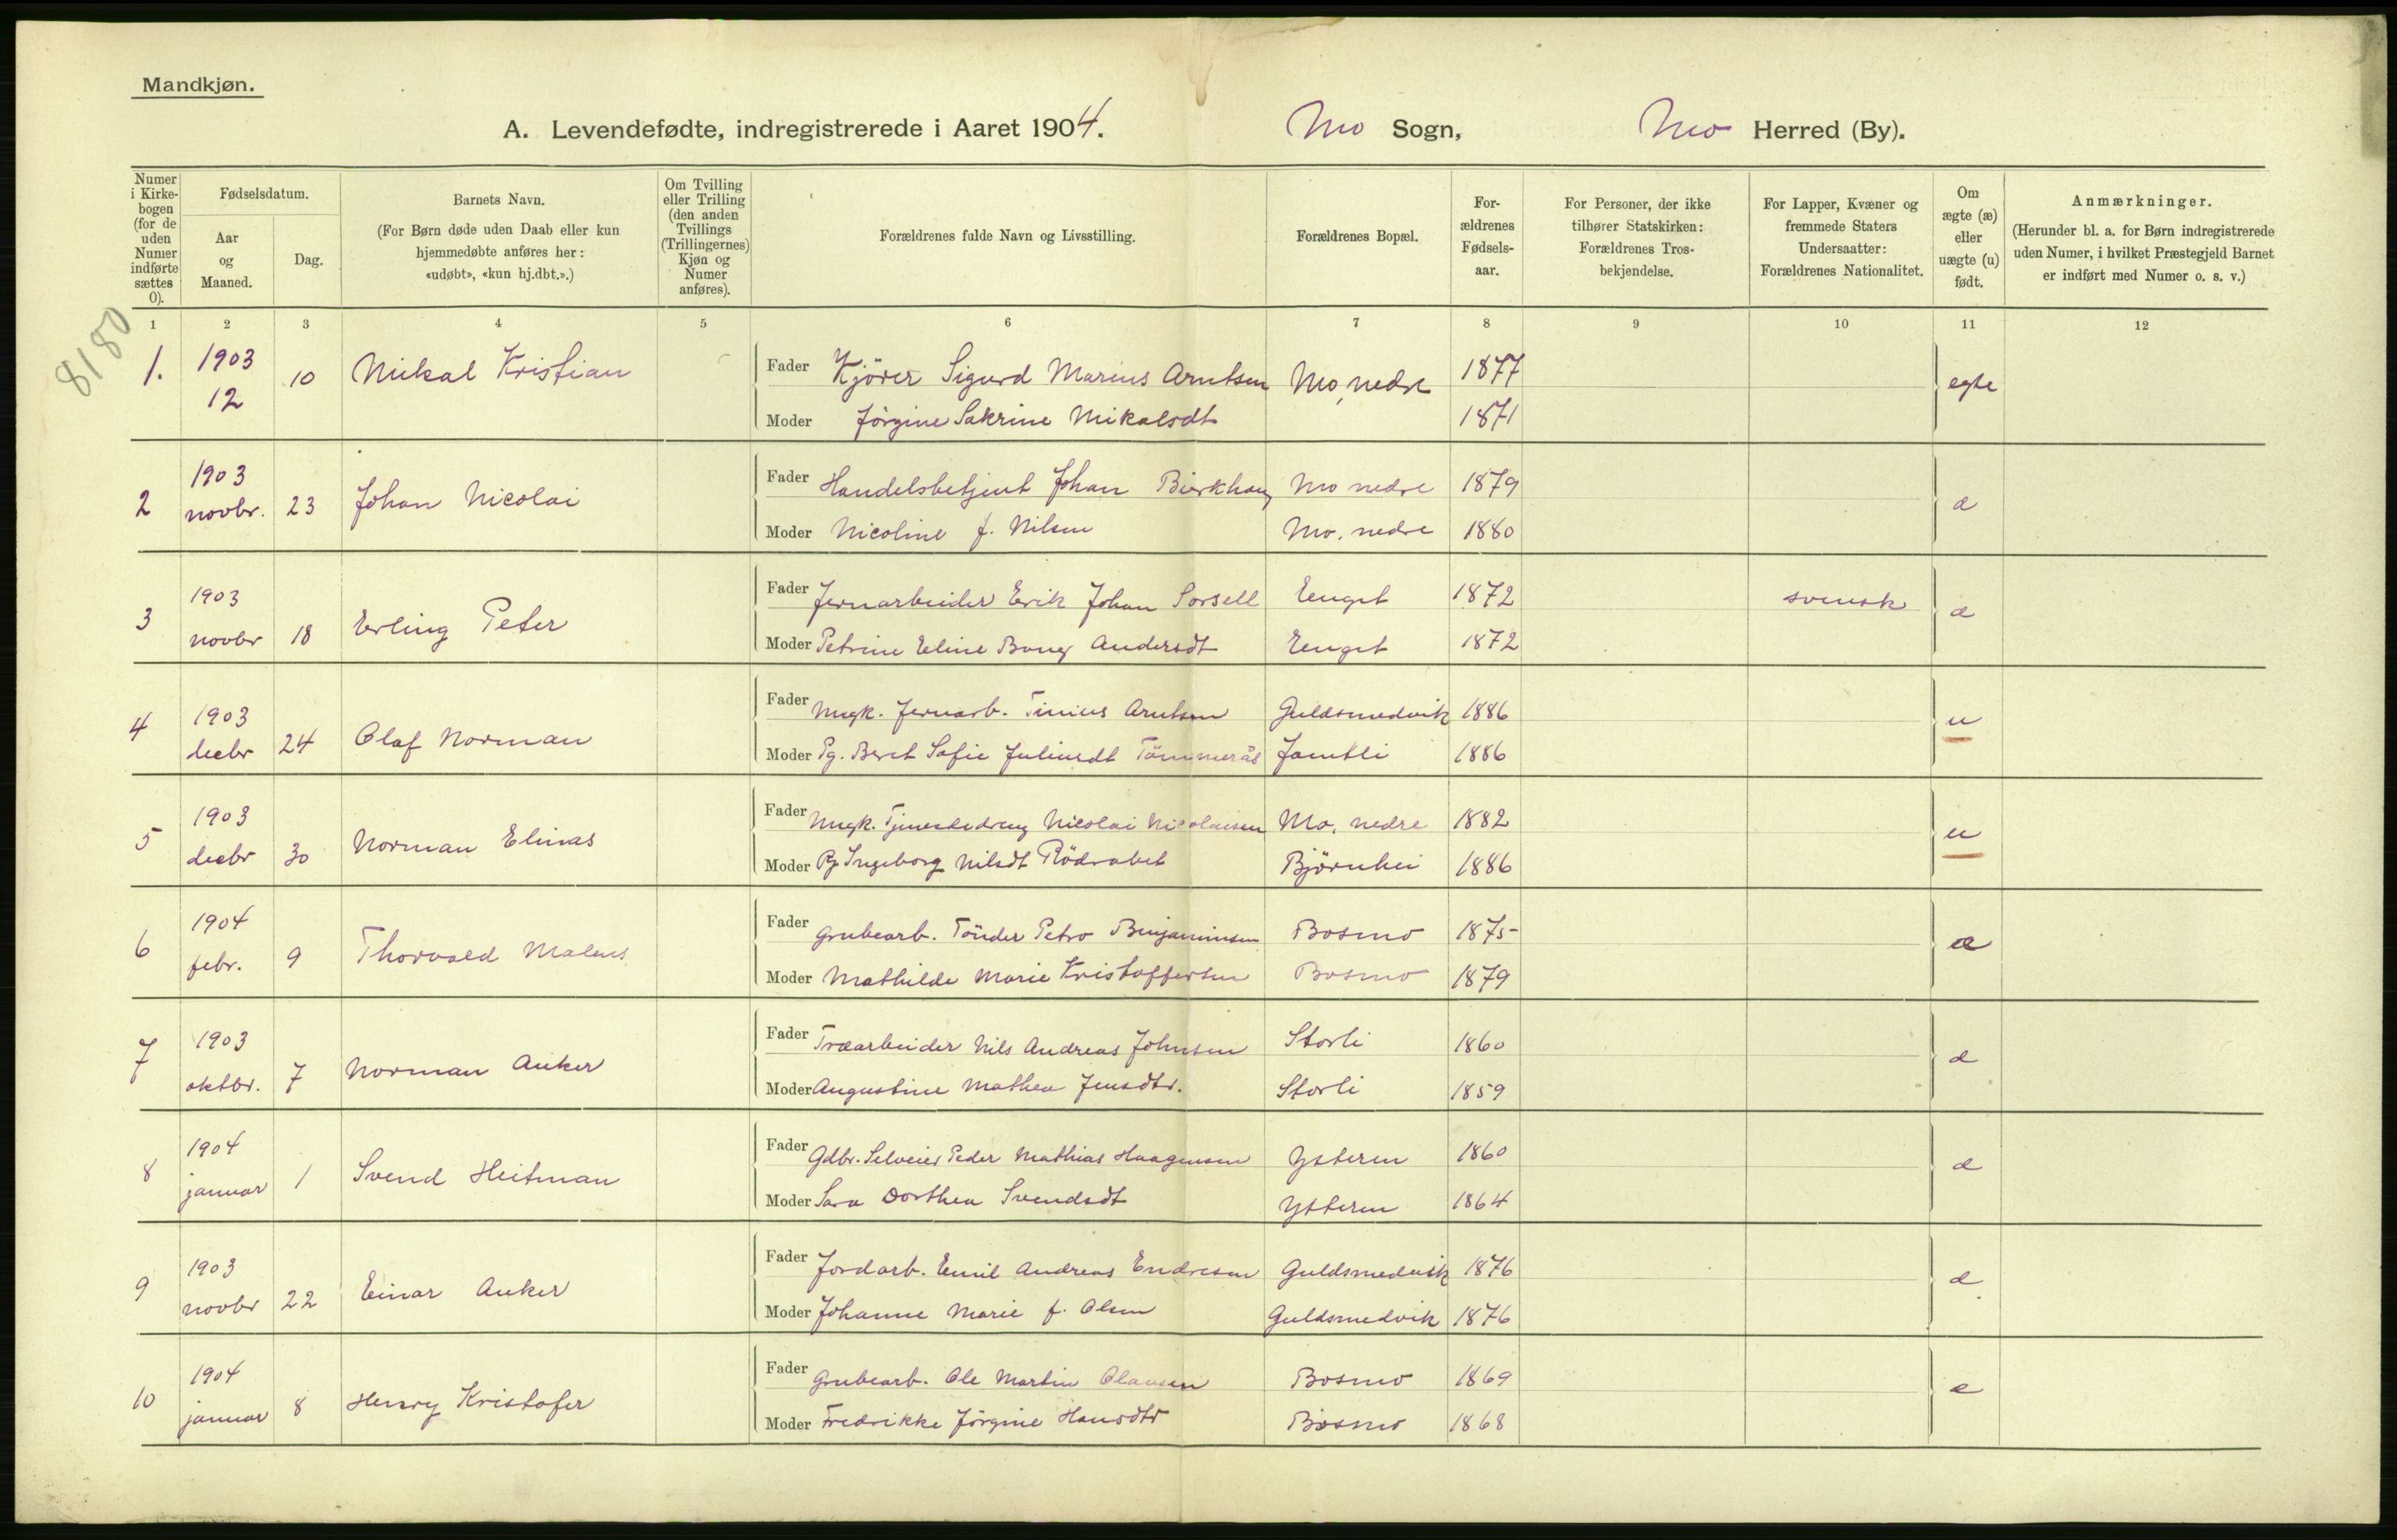 Mandkjøn.
A. Levendefødte, indregistrerede i Aaret 1904. Mo Sogn, Mo Herred (By).
Numer i Kirkebogen (for de uden Numer indførte sættes 0).
Fødselsdatum.
Aar og Maaned.
Dag.
Barnets Navn.
(For Børn døde uden Daab eller kun hjemmedøbte anføres her: «udøbt», «kun hj.dbt.».)
Om Tvilling eller Trilling (den anden Tvillings (Trillingernes) Kjøn og Numer anføres).
Forældrenes fulde Navn og Livsstilling.
Forældrenes Bopæl.
Forældrenes Fødselsaar.
For Personer, der ikke tilhører Statskirken: Forældrenes Trosbekjendelse.
For Lapper, Kvæner og fremmede Staters Undersaatter: Forældrenes Nationalitet.
Om ægte (æ) eller uægte (u) født.
Anmærkninger.
(Herunder bl. a. for Børn indregistrerede uden Numer, i hvilket Præstegjeld Barnet er indført med Numer o. s. v.)
1 2 3 4 5 6 7 8 9 10 11 12
8180
1. 1903 12 10 Mikal Kristian
Fader Kjörer Sigurd Marius Arntsen Mo, nedre 1877 egte
Moder Jörgine Sakrine Mikalsdt 1871
2 1903 novbr. 23 Johan Nicolai
Fader Handelsbetjent Johan Bierkhaug Mo nedre 1879 æ
Moder Nicoline f. Nilsen Mo, nedre 1880
3 1903 novbr 18 Erling Peter
Fader Jernarbeider Erik Johan Sorsell Enget 1872 svensk æ
Moder Petrine Eline Andersdt Enget 1872
4 1903 decbr 24 Olaf Norman
Fader Ungk. Jernarb. Tinius Arntsen Guldsmedvik 1886 u
Moder Pg. Beret Sofie Juliusdt Tömmerås Jamtli 1886
5 1903 decbr 30 Norman Elinas
Fader Ungk. Tjenestedreng Nicolai Nicolaisen Mo, nedre 1882 u
Moder Pg. Ingeborg Nilsdt Rödvabet Björnhei 1886
6 1904 febr. 9 Thorvald Malens
Fader Grubearb. Tönder Petro Benjaminsen Bosmo 1875 æ
Moder Mathilde Marie Kristoffersen Bosmo 1879
7 1903 oktbr. 7 Norman Anker
Fader Træarbeider Nils Andreas Johnsen Storli 1860 æ
Moder Augustine Mathea Jensdtr. Storli 1859
8 1904 januar 1 Svend Heitman
Fader Gdbr. Selveier Peder Mathias Haagensen Ytteren 1860 æ
Moder Sara Dorthea Svendsdt Ytteren 1864
9 1903 novbr 22 Einar Anker
Fader Jordarb. Emil Andreas Endresen Guldsmedvik 1876 æ
Moder Johanne Marie f. Olsen Guldsmedvik 1876
10 1904 januar 8 Henry Kristofer
Fader Grubearb. Ole Martin Olausen Bosmo 1869 æ
Moder Fredrikke Jörgine Hansdtr Bosmo 1868